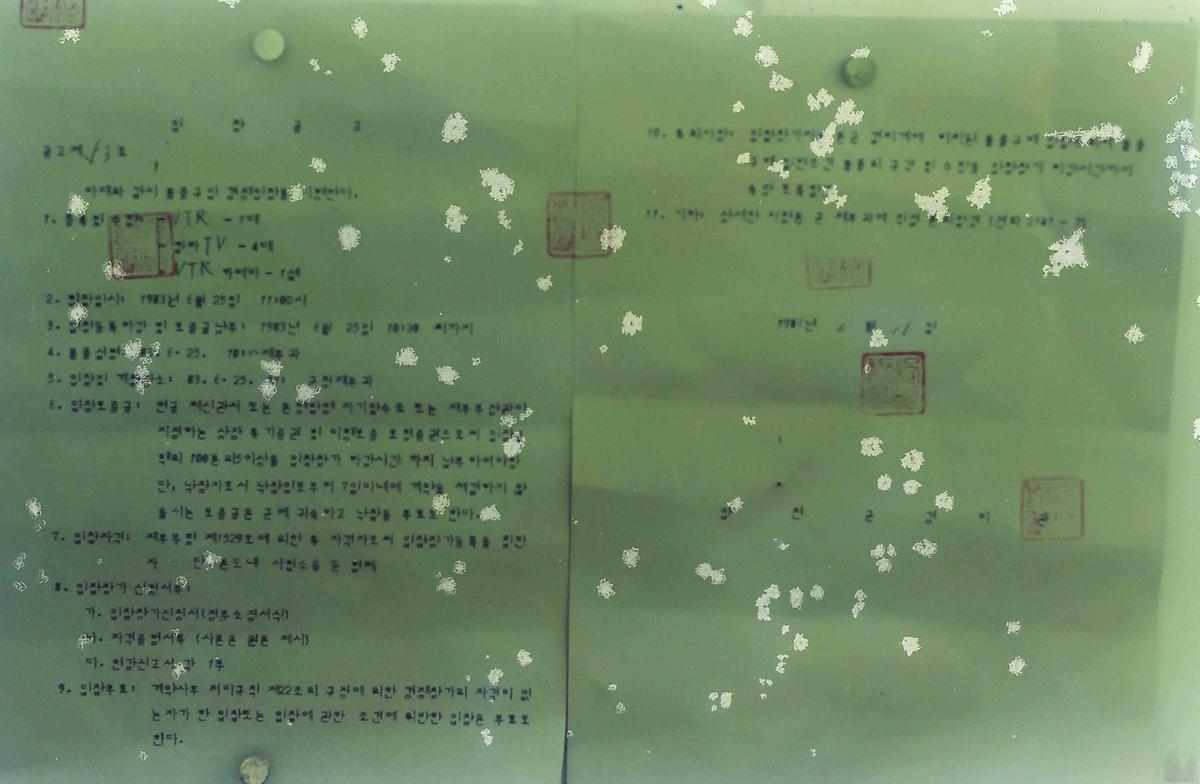 입 찰 공 고
공고제 13 호
아래와 같이 물품구입 경쟁입찰을 시행한다.
1. 품목및 수량: VTR - 1대
칼라 TV - 4대
VTR 카메라 - 1대
2. 입찰일시: 1983년 6월 25일 11:00시
3. 입찰등록마감 및 보증금납부: 1983년 6월 25일 10:30 시까지
4. 물품설명: 83. 6. 25. 10: 재무과
5. 입찰및 계약장소: 83. 6. 25. 군청재무과
6. 입찰보증금: 현금 체신관서 또는 은행발행 자기앞수표 또는 재무부장관이
지정하는 상장 유가증권 및 이행보증 보험증권으로서 입찰
액의 100분의5이상을 입찰참가 마감시간 까지 납부 하여야함
단, 낙찰자로서 낙찰일로부터 7일이내에 계약을 체결하지 않
을시는 보증금은 군에 귀속하고 낙찰을 무효로 한다.
7. 입찰자격: 재무부령 제1529호에 의한 유 자격자로서 입찰참가등록을 필한
자 단 본도내 사업소를 둔 업체
8. 입찰참가 신청서류:
가. 입찰참가신청서(정부소정서식)
나. 자격증명서류 (사본은 원본 제시)
다. 인감신고서 각 1부
9. 입찰무효: 계약사무 처리규칙 제22조의 규정에 의한 경쟁참가의 자격이 없
는자가 한 입찰또는 입찰에 관한 조건에 위반한 입찰은 무효로
한다.
10. 유의사항: 입찰참가자는 본군 경리계에 비치된 물품구매 물품
구매 입찰조건 물품의 규격 및 수량을 입찰참가 마감시간까지
숙지
11. 기타: 상세한 사항은 군 재무과에 (전화 2101-
198 년 6 월 일
군 경 리 관